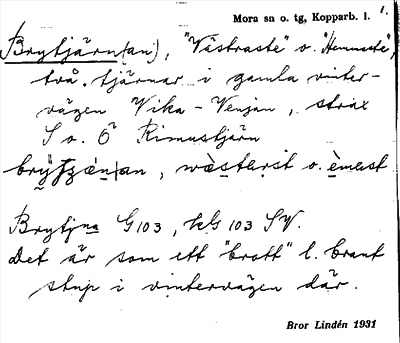 Mora sn o. tg, Kopparb. l. 1.
Brytjärn(an), "Västraste" o. "Hemmaste",
två tjärnar i gamla vinter-
vägen Vika - Venjan, strax
S o. Ö Rimustjärn
wä̀stₐrst o. èmₐst
Brytjna G103, kG 103 SV.
Det är som ett "brott" l. brant
stup i vintervägen där.
Bror Lindén 1931